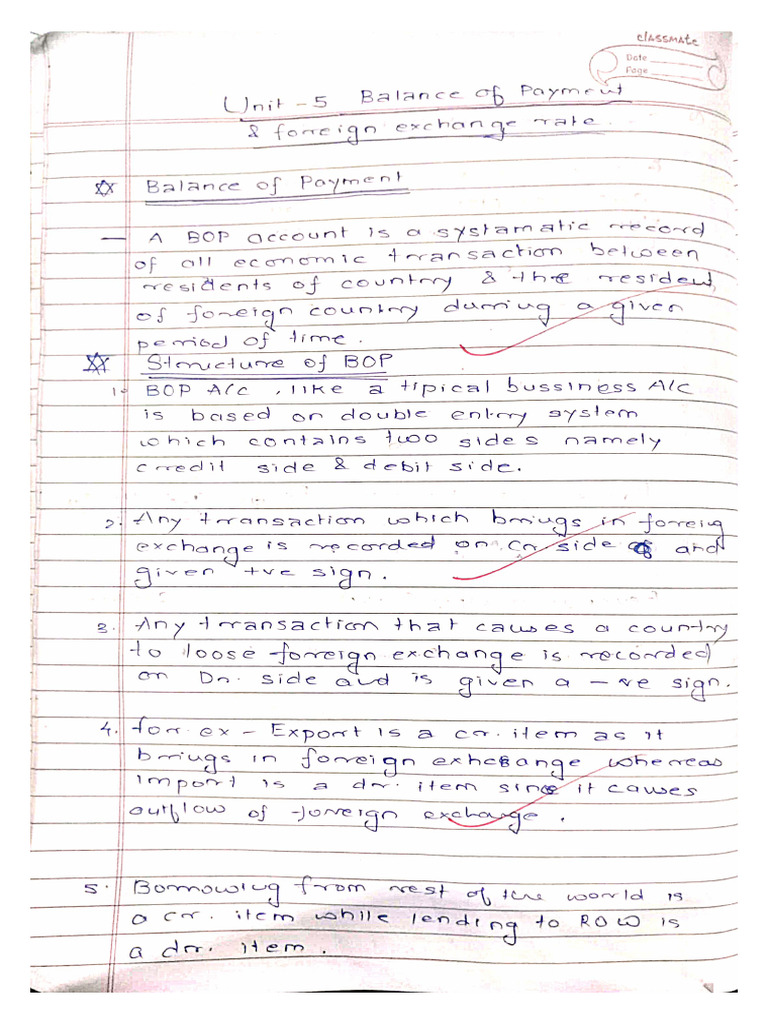 classmate
Date
Page
Unit - 5 Balance of Payment
& foreign exchange rate.
Balance of Payment
— A BOP account is a systematic record
of all economic transaction between
residents of country & the resident
of foreign country durring a given
period of time.
Structure of BOP
1- BOP A/c, like a tipical bussiness A/c
is based on double entry system
which contains two sides namely
credit side & debit side.
2. Any transaction which brings in foreig
exchange is recorded on cr. side and
given +ve sign.
3. Any transaction that causes a country
to loose foreign exchange is recorded
on Dr. side and is given a -ve sign.
4. for. ex - Export is a cr. item as it
brings in foreign exhcange whereas
import is a dr. item since it causes
outflow of foreign exchange.
5. Borrowing from rest of the world is
a cr. item while lending to ROW is
a dr. item.